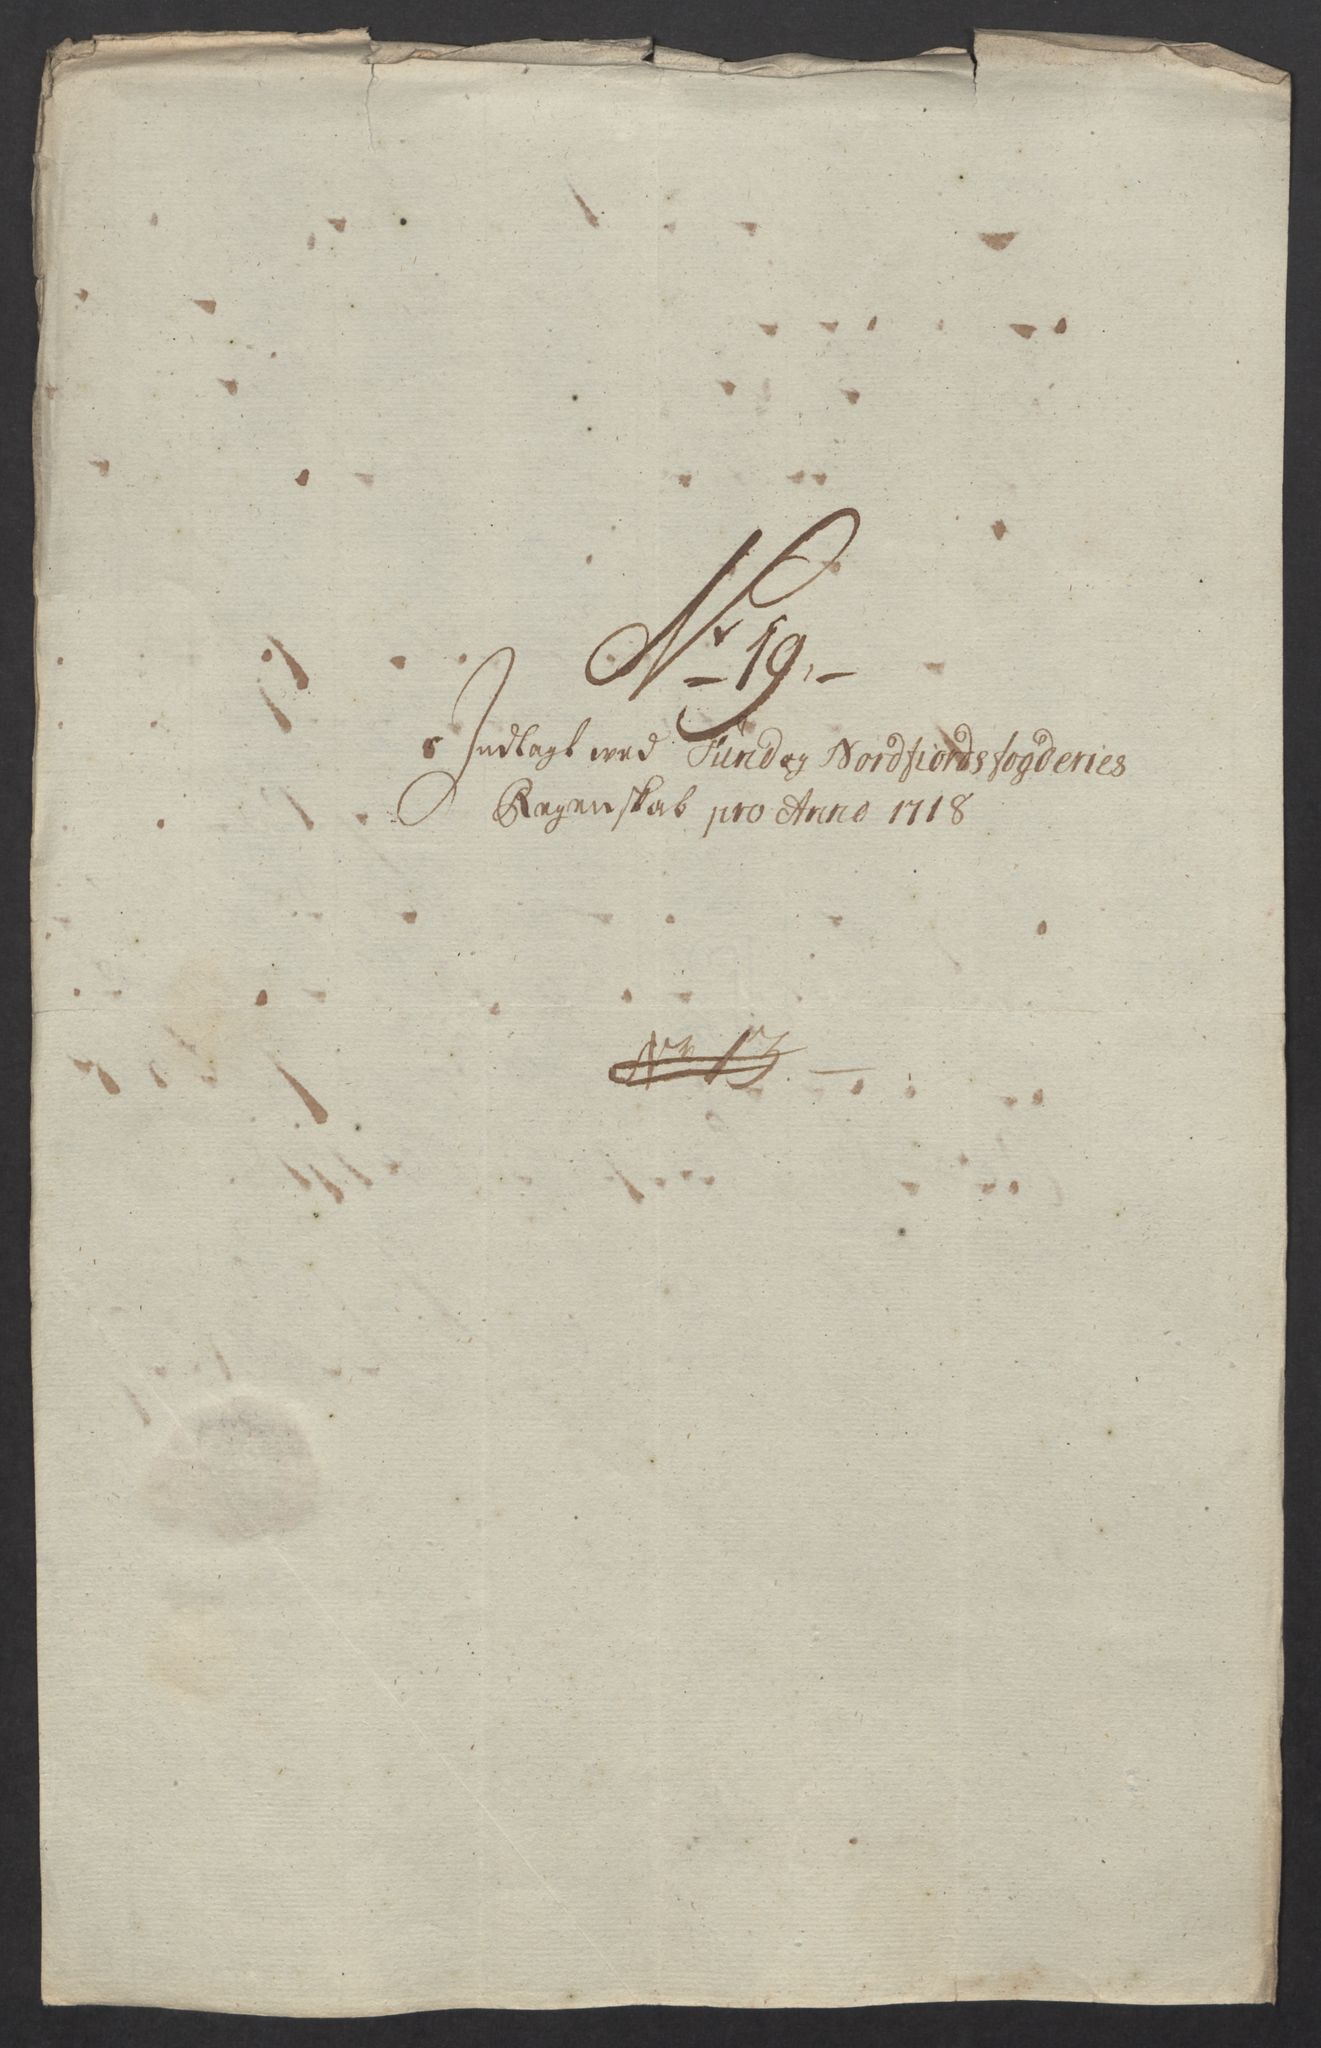 Nr 19.
Indlagt wed Sund og Nordfiords fogderies
Regenskab pro Anno 1718
No 13.